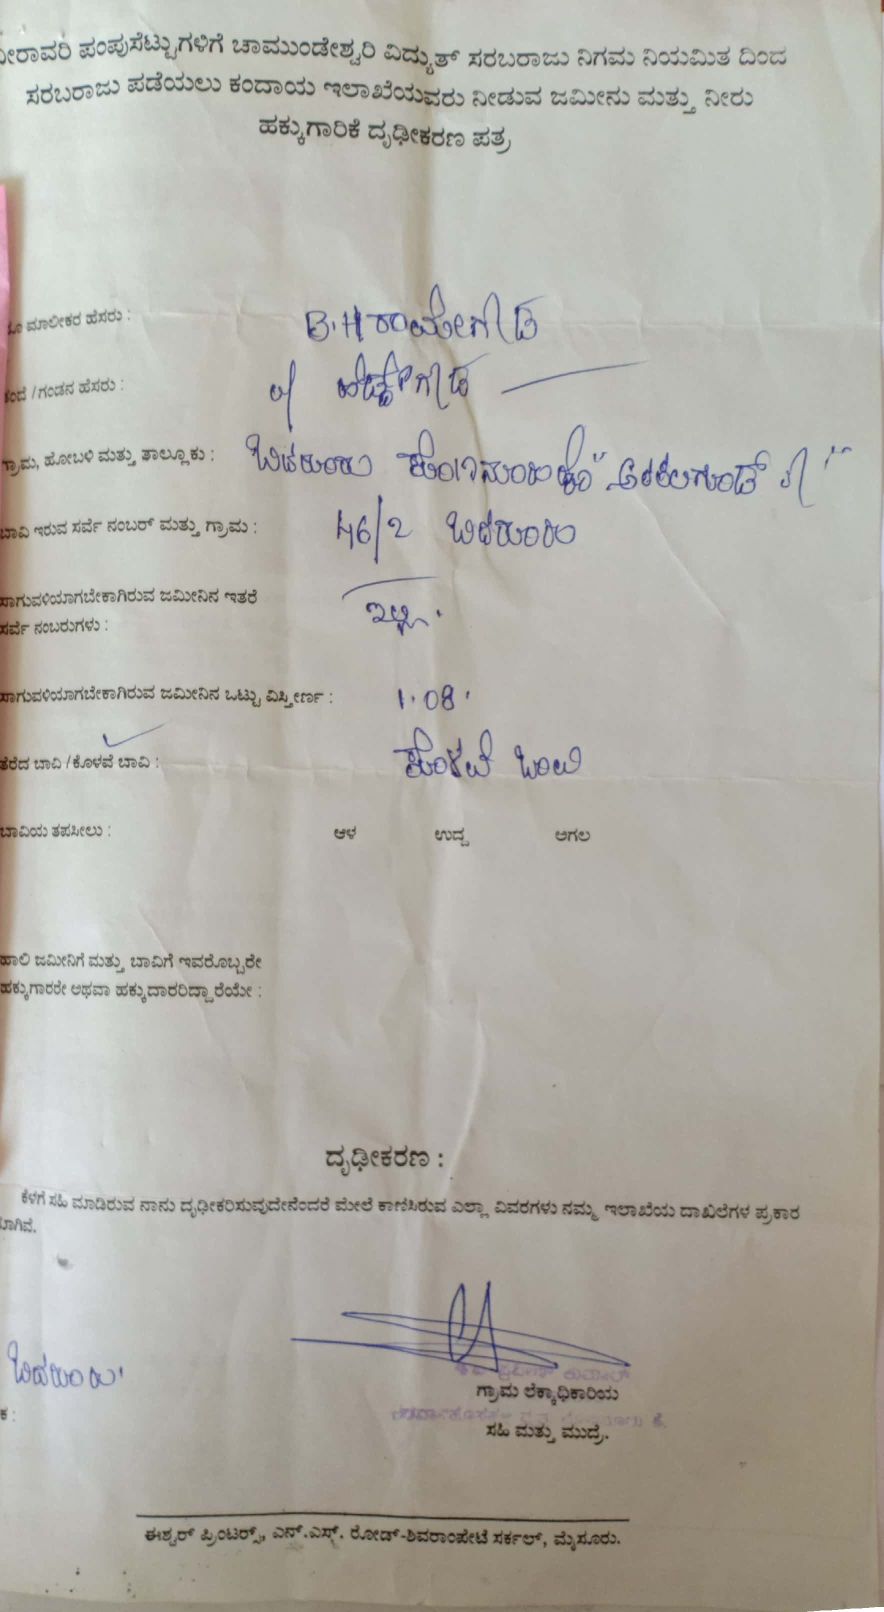 ನೀರಾವರಿ ಪಂಪುಸೆಟ್ಟುಗಳಿಗೆ ಚಾಮುಂಡೇಶ್ವರಿ ವಿದ್ಯುತ್ ಸರಬರಾಜು ನಿಗಮ ನಿಯಮಿತ ದಿಂದ
ಸರಬರಾಜು ಪಡೆಯಲು ಕಂದಾಯ ಇಲಾಖೆಯವರು ನೀಡುವ ಜಮೀನು ಮತ್ತು ನೀರು
ಹಕ್ಕುಗಾರಿಕೆ ದೃಢೀಕರಣ ಪತ್ರ
ಮಾಲೀಕರ ಹೆಸರು : B.H ರಾಮೇಗೌಡ
ತಂದೆ / ಗಂಡನ ಹೆಸರು :
ಗ್ರಾಮ, ಹೋಬಳಿ ಮತ್ತು ತಾಲ್ಲೂಕು :
ಬಾವಿ ಇರುವ ಸರ್ವೆ ನಂಬರ್ ಮತ್ತು ಗ್ರಾಮ : 46/2
ಸಾಗುವಳಿಯಾಗಬೇಕಾಗಿರುವ ಜಮೀನಿನ ಇತರೆ
ಸರ್ವೆ ನಂಬರುಗಳು : ಇಲ್ಲ.
ಸಾಗುವಳಿಯಾಗಬೇಕಾಗಿರುವ ಜಮೀನಿನ ಒಟ್ಟು ವಿಸ್ತೀರ್ಣ : 1.08.
ತೆರೆದ ಬಾವಿ / ಕೊಳವೆ ಬಾವಿ : ಕೊಳವೆ ಬಾವಿ
ಬಾವಿಯ ತಪಸೀಲು : ಆಳ ಉದ್ದ ಅಗಲ
ಹಾಲಿ ಜಮೀನಿಗೆ ಮತ್ತು ಬಾವಿಗೆ ಇವರೊಬ್ಬರೇ
ಹಕ್ಕುಗಾರರೇ ಅಥವಾ ಹಕ್ಕುದಾರರಿದ್ದಾರೆಯೇ :
ದೃಢೀಕರಣ :
ಕೆಳಗೆ ಸಹಿ ಮಾಡಿರುವ ನಾನು ದೃಢೀಕರಿಸುವುದೇನೆಂದರೆ ಮೇಲೆ ಕಾಣಿಸಿರುವ ಎಲ್ಲಾ ವಿವರಗಳು ನಮ್ಮ ಇಲಾಖೆಯ ದಾಖಲೆಗಳ ಪ್ರಕಾರ
ಗ್ರಾಮ ಲೆಕ್ಕಾಧಿಕಾರಿಯ
ಸಹಿ ಮತ್ತು ಮುದ್ರೆ.
ಈಶ್ವರ್ ಪ್ರಿಂಟರ್ಸ್, ಎನ್.ಎಸ್. ರೋಡ್-ಶಿವರಾಂಪೇಟೆ ಸರ್ಕಲ್, ಮೈಸೂರು.